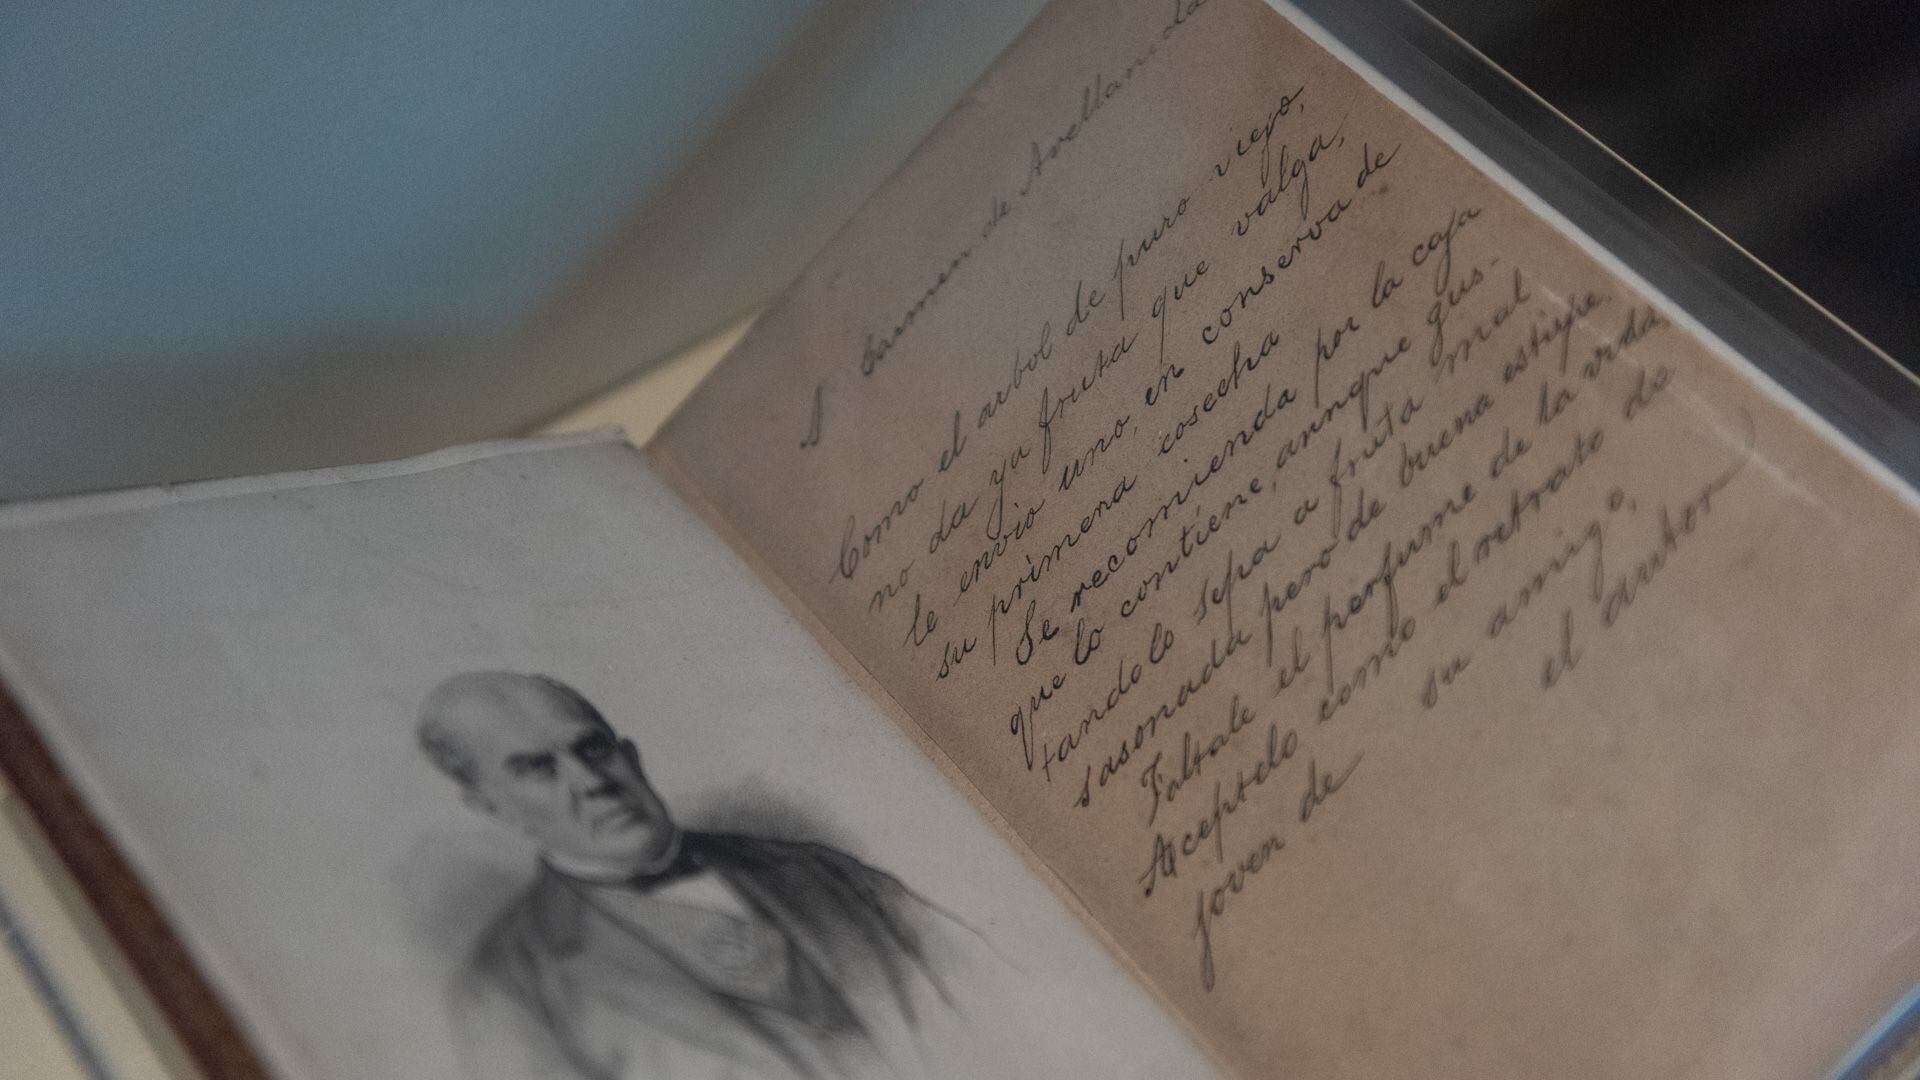 A Carmen de Avellaneda
Como el arbol de puro viejo,
no da ya fruta que valga,
le envio uno, en conserva de
su primera cosecha
Se recomienda por la caja
que lo contiene, aunque gus-
tandolo sepa a fruta mal
sasonada pero de buena estirpe.
Faltale el perfume de la vida.
Aceptelo como el retrato do
joven de su amigo,
el autor